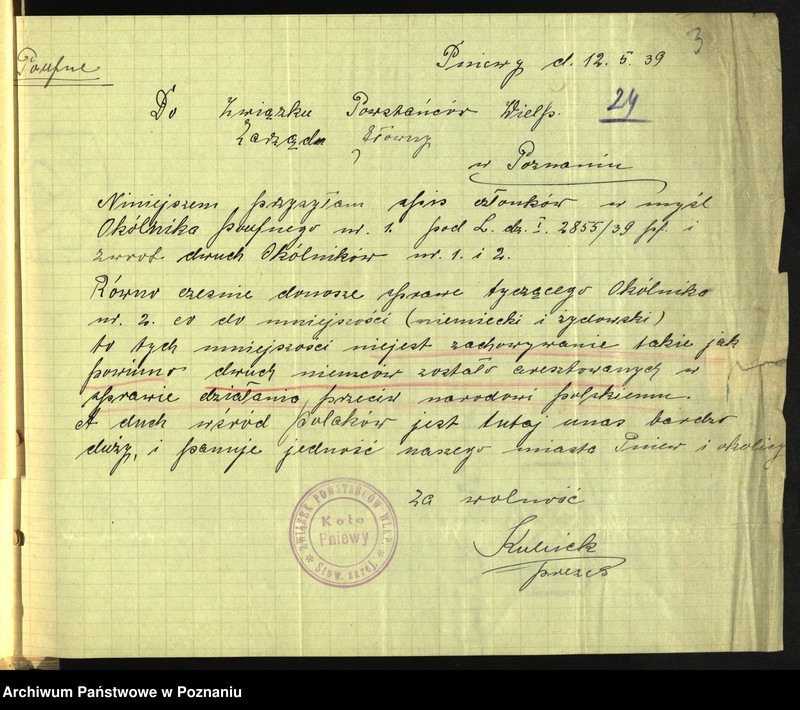 3
Poufne
Pniewy d. 12. 5. 39
24
Do Związku Powstańców Wielp.
Zarządu Główny
w Poznaniu
Niniejszem przysyłam spis członków w myśl
Okólnika poufnego nr. 1. pod L. dz. I. 2855/39 pf. i
zwrot dwuch Okólników nr. 1. i 2.
Równo cześnie donosze sprawe tyczącego Okólnika
nr. 2. co do mniejszości (niemiecki i zydowski)
to tych mniejszości niejest zachowywanie takie jak
powinno dwuch niemców zostało aresztowanych w
sprawie działania przeciw narodowi polskiemu.
A duch wśród polaków jest tutaj unas bardzo
duży, i panuje jedność naszego miasta Pniew i okolicy
Za wolność
prezes
ZWIĄZEK POWSTAŃCÓW WLLP.
Koło
Pniewy
Stow. zarej.
Archiwum Państwowe w Poznaniu